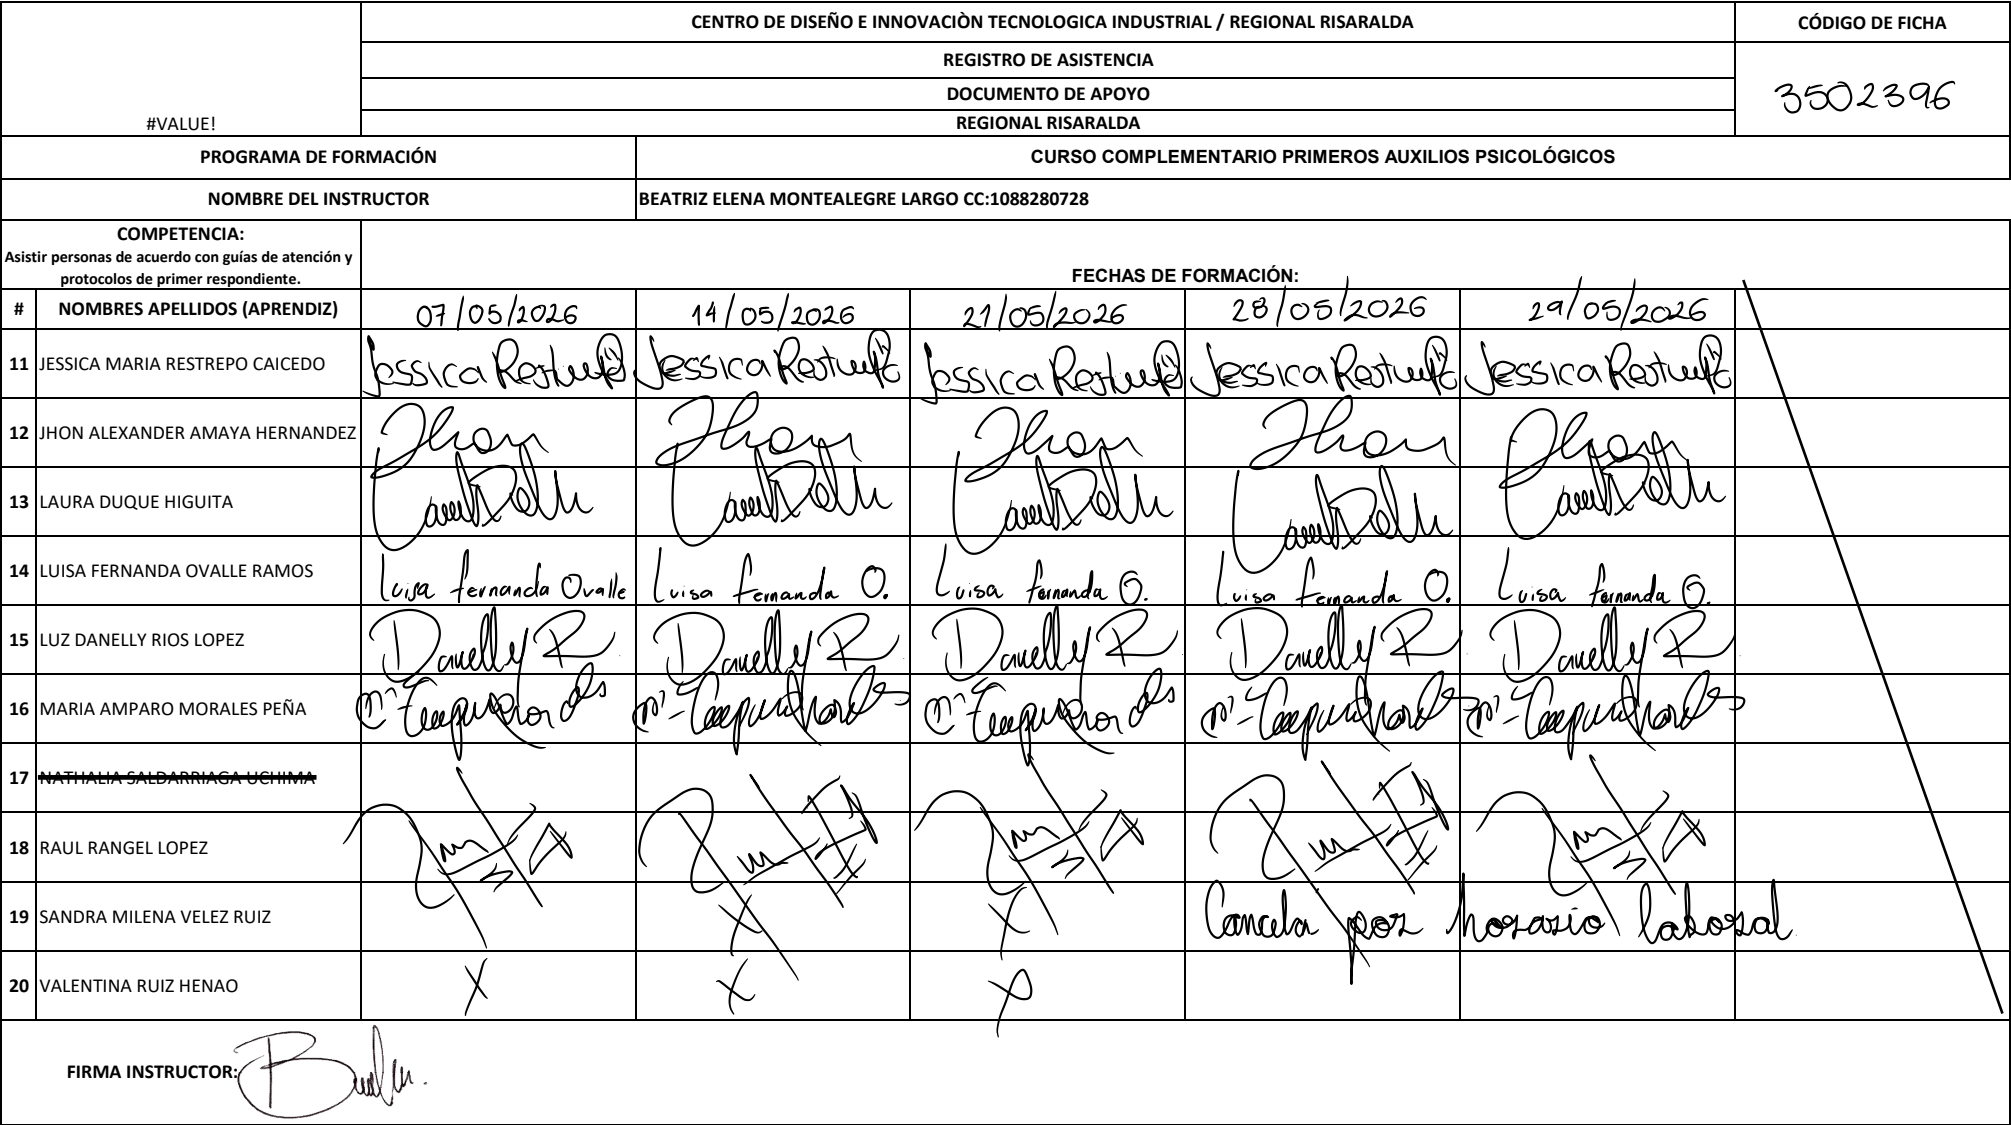 CENTRO DE DISEÑO E INNOVACIÒN TECNOLOGICA INDUSTRIAL / REGIONAL RISARALDA
CÓDIGO DE FICHA
REGISTRO DE ASISTENCIA
DOCUMENTO DE APOYO
3502396
#VALUE!
REGIONAL RISARALDA
PROGRAMA DE FORMACIÓN
CURSO COMPLEMENTARIO PRIMEROS AUXILIOS PSICOLÓGICOS
NOMBRE DEL INSTRUCTOR
BEATRIZ ELENA MONTEALEGRE LARGO CC:1088280728
COMPETENCIA:
Asistir personas de acuerdo con guías de atención y
protocolos de primer respondiente.
FECHAS DE FORMACIÓN:
# NOMBRES APELLIDOS (APRENDIZ) 07/05/2026 14/05/2026 21/05/2026 28/05/2026 29/05/2026
11 JESSICA MARIA RESTREPO CAICEDO Jessica Restrepo Jessica Restrepo Jessica Restrepo Jessica Restrepo Jessica Restrepo
12 JHON ALEXANDER AMAYA HERNANDEZ Jhon Jhon Jhon Jhon Jhon
13 LAURA DUQUE HIGUITA
14 LUISA FERNANDA OVALLE RAMOS Luisa fernanda Ovalle Luisa fernanda O. Luisa fernanda O. Luisa fernanda O. Luisa fernanda O.
15 LUZ DANELLY RIOS LOPEZ Danelly R Danelly R Danelly R Danelly R Danelly R
16 MARIA AMPARO MORALES PEÑA
17 NATHALIA SALDARRIAGA UCHIMA
18 RAUL RANGEL LOPEZ
19 SANDRA MILENA VELEZ RUIZ X X Cancela por horario laboral
20 VALENTINA RUIZ HENAO X X X
FIRMA INSTRUCTOR: